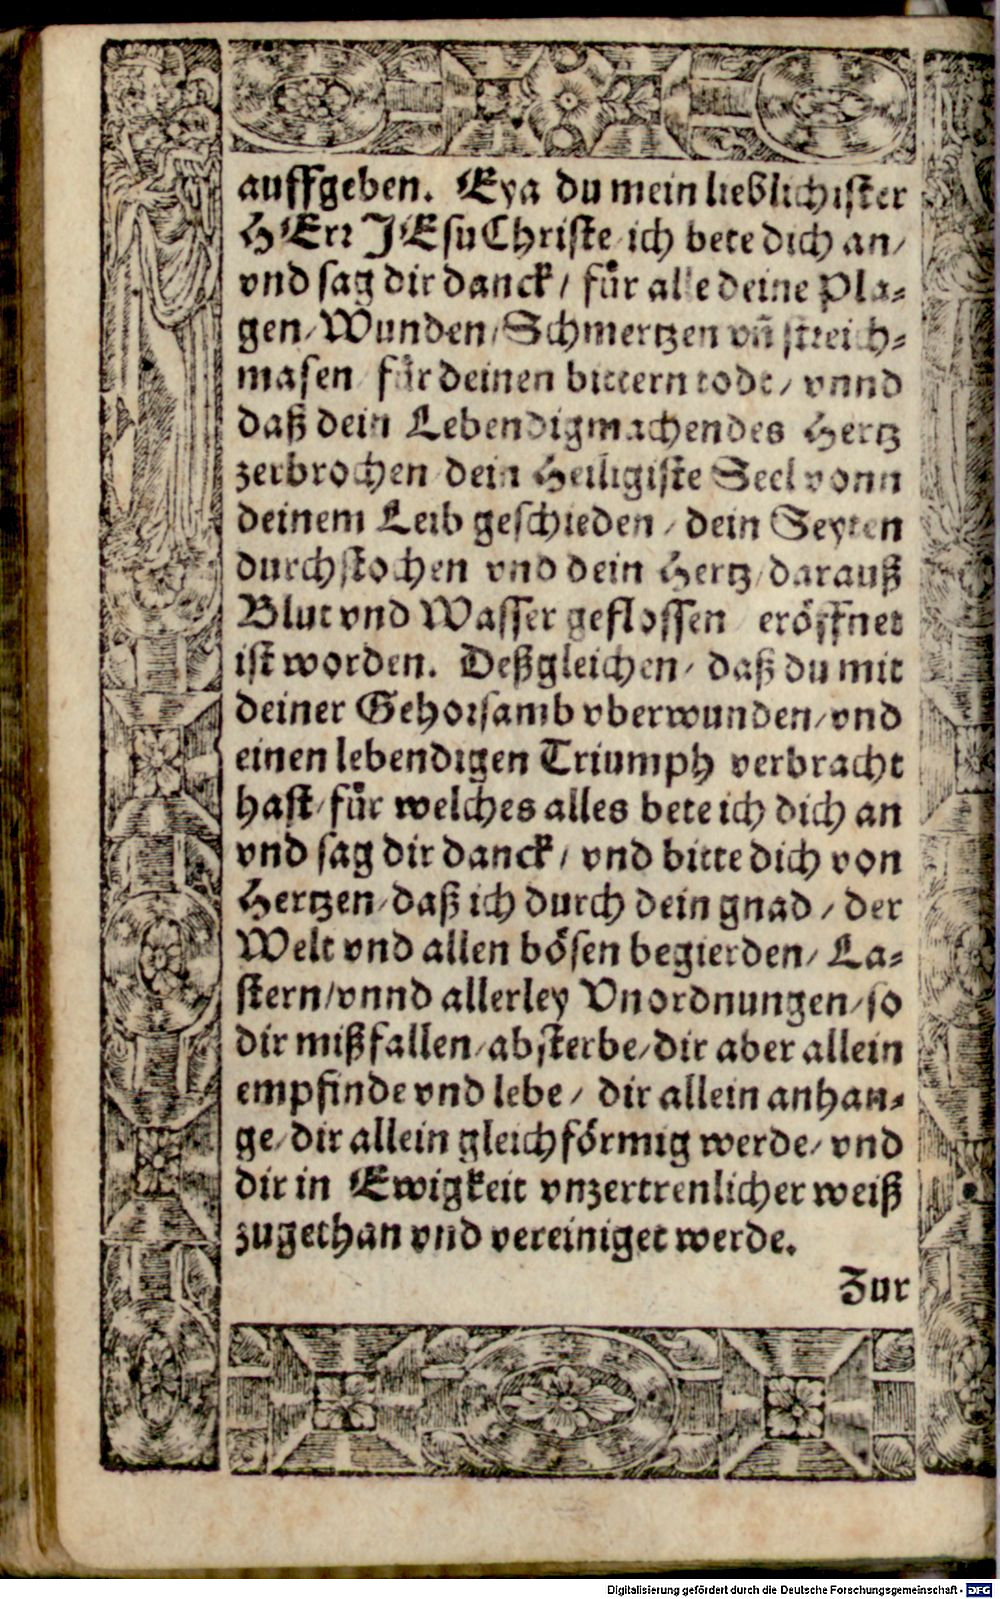 auffgeben. Eya du mein lieblichister
HErr JEsu Christe ich bete dich an/
vnd sag dir danck / für alle deine Pla-
gen/Wunden/Schmertzen vñ streich-
masen für deinen bittern todt/ vnnd
daß dein Lebendigmachendes Hertz
zerbrochen dein Heiligiste Seel vonn
deinem Leib geschieden / dein Seyten
durchstochen vnd dein Hertz/darauß
Blut vnd Wasser geflossen eröffnet
ist worden. Deßgleichen/ daß du mit
deiner Gehorsamb vberwunden/vnd
einen lebendigen Triumph verbracht
hast/für welches alles bete ich dich an
vnd sag dir danck / vnd bitte dich von
Hertzen/daß ich durch dein gnad / der
Welt vnd allen bösen begierden/ La-
stern/vnnd allerley Vnordnungen/so
dir mißfallen/absterbe/dir aber allein
empfinde vnd lebe / dir allein anhan-
ge/dir allein gleichförmig werde/ vnd
dir in Ewigkeit vnzertrenlicher weiß
zugethan vnd vereiniget werde.
Zur
Digitalisierung gefördert durch die Deutsche Forschungsgemeinschaft - DFG